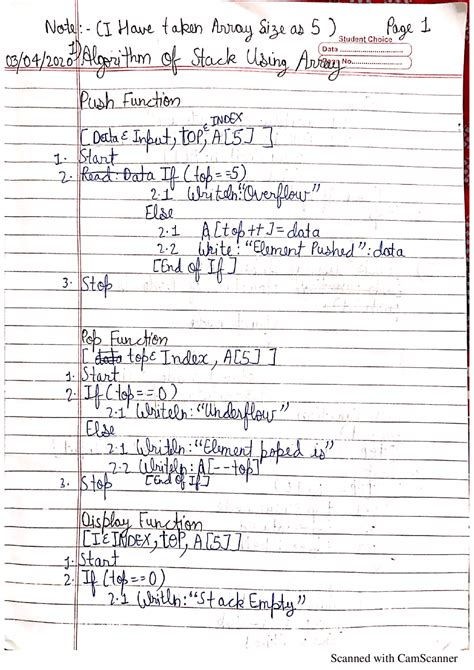 Note:- (I Have taken Array Size as 5) Page 1
Student Choice
Date
Page No.
03/04/2020 1) Algorithm of Stack Using Array
Push Function
[Data ε Input, top ε INDEX, A[5]]
1. Start
2. Read: Data If (top==5)
2.1 Writeln:"Overflow"
Else
2.1 A[top++]=data
2.2 Write:"Element Pushed":data
[End of If]
3. Stop
Pop Function
[data top ε Index, A[5]]
1. Start
2. If (top==0)
2.1 Writeln:"Underflow"
Else
2.1 Writeln:"Element poped is"
2.2 Writeln: A[--top]
[End of If]
3. Stop
Display Function
[I ε INDEX, top, A[5]]
1. Start
2. If (top==0)
2.1 Writln:"Stack Empty"
Scanned with CamScanner